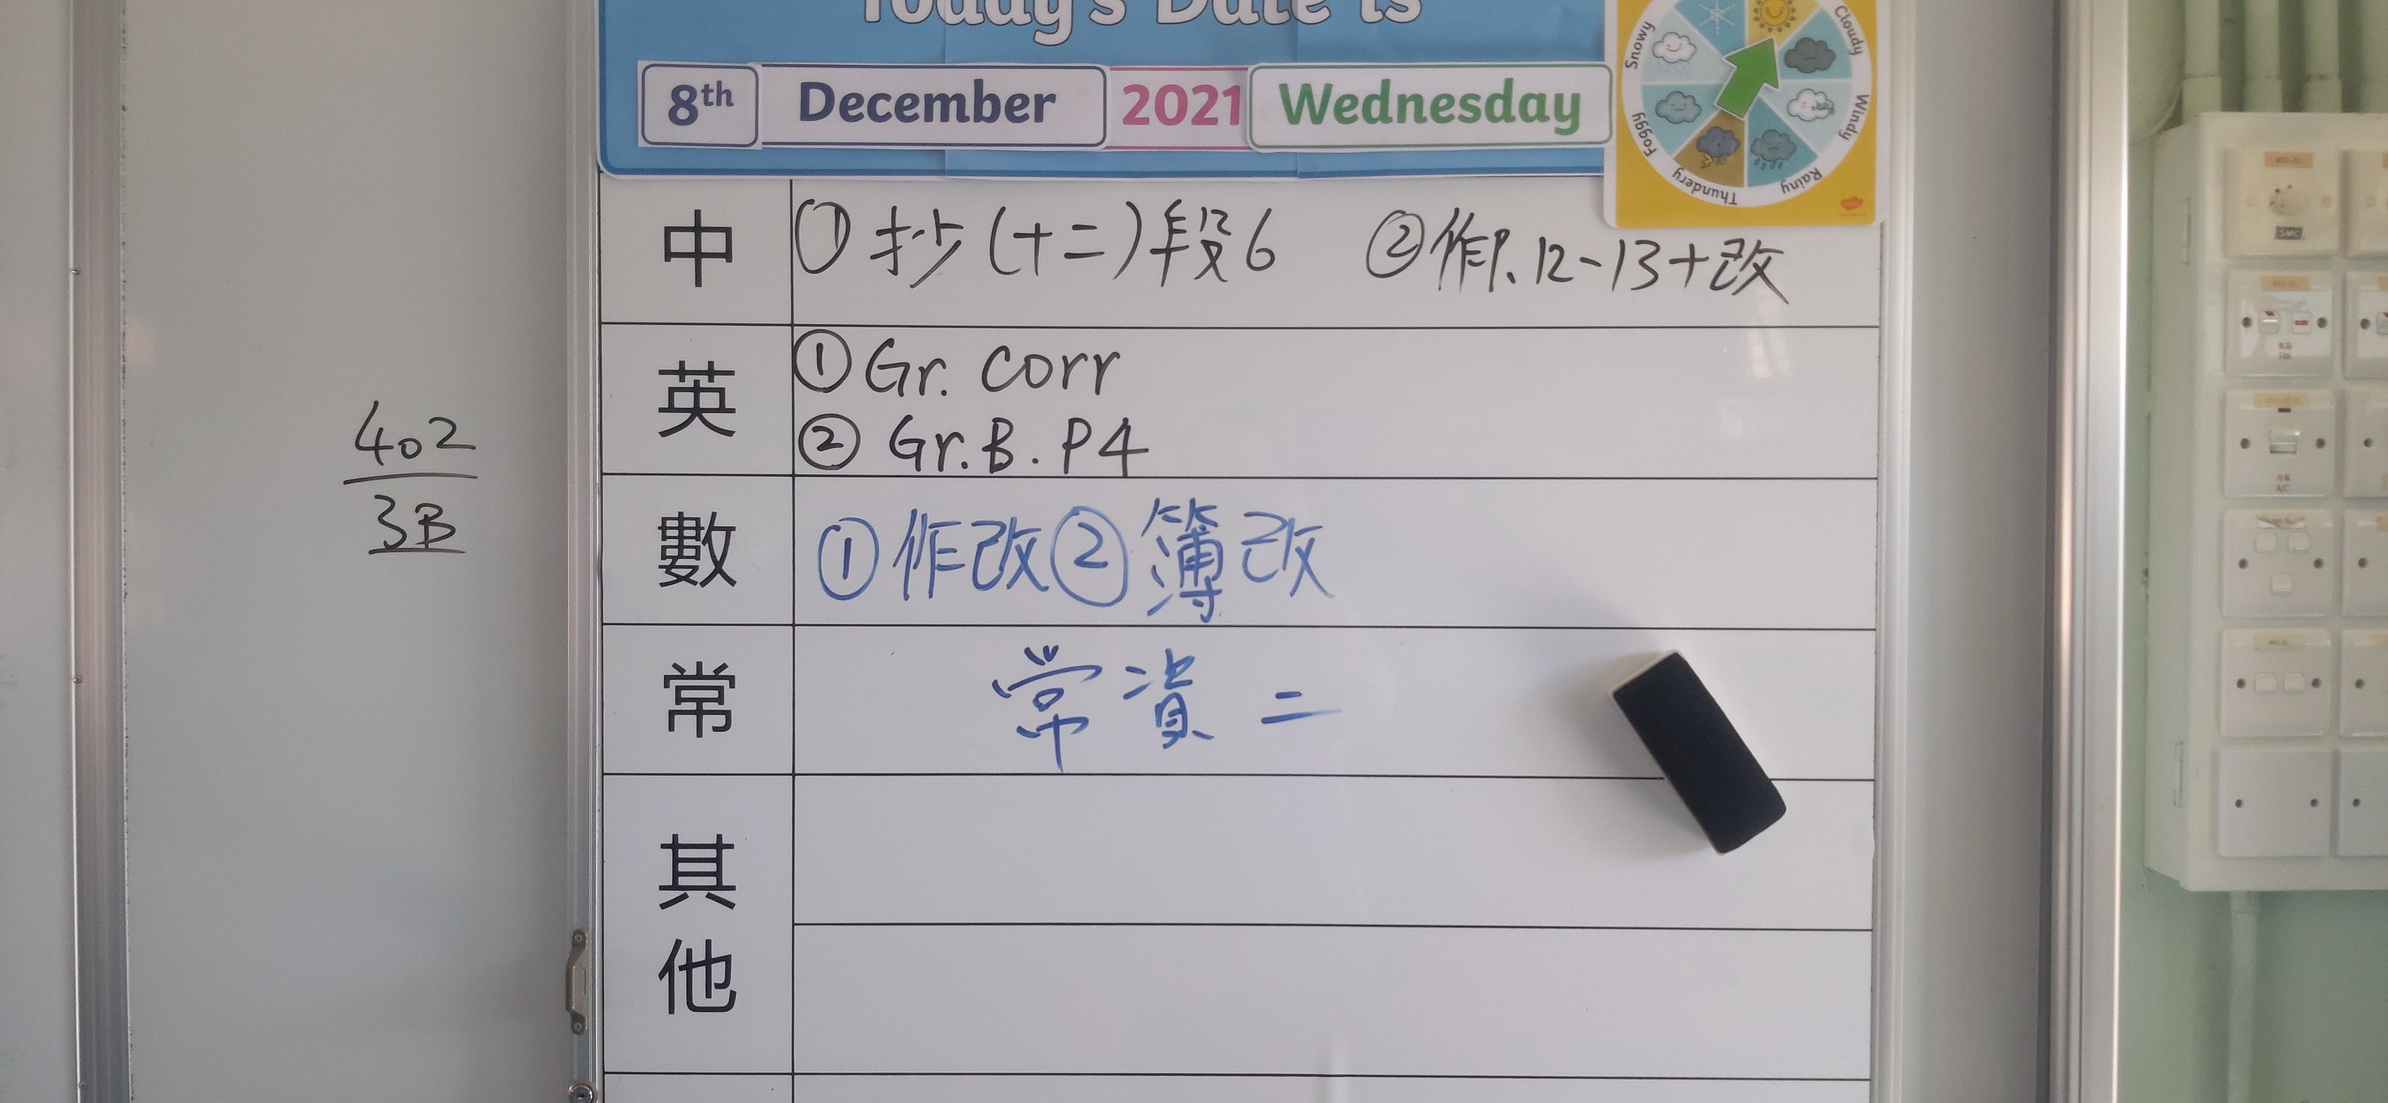 Today's Date is
8th December 2021 Wednesday
Snowy
Cloudy
Windy
Rainy
Thundery
Foggy
中 ①抄(十二)段6 ②作P.12-13+改
英 ①Gr. Corr
②Gr.B. P4
數 ①作改②簿改
常 常資二
其他
402
3B
SMC